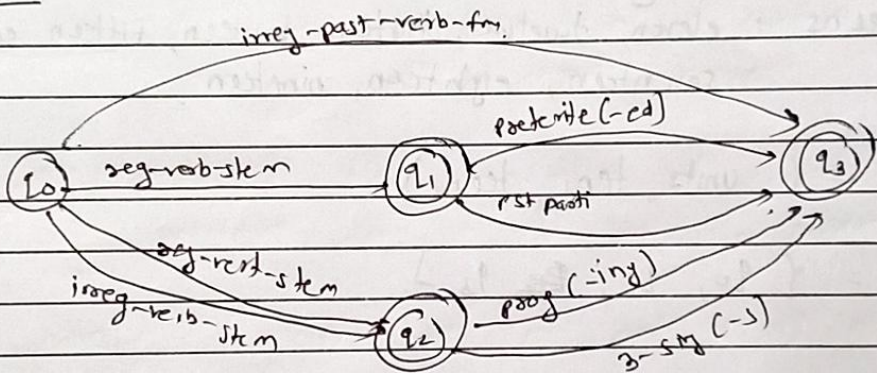 irreg-past-verb-fm
preterite (-ed)
reg-verb-stem
q0
q1
q3
pst parti
reg-verb-stem
prog (-ing)
irreg-verb-
stem
q2
3-sing (-s)